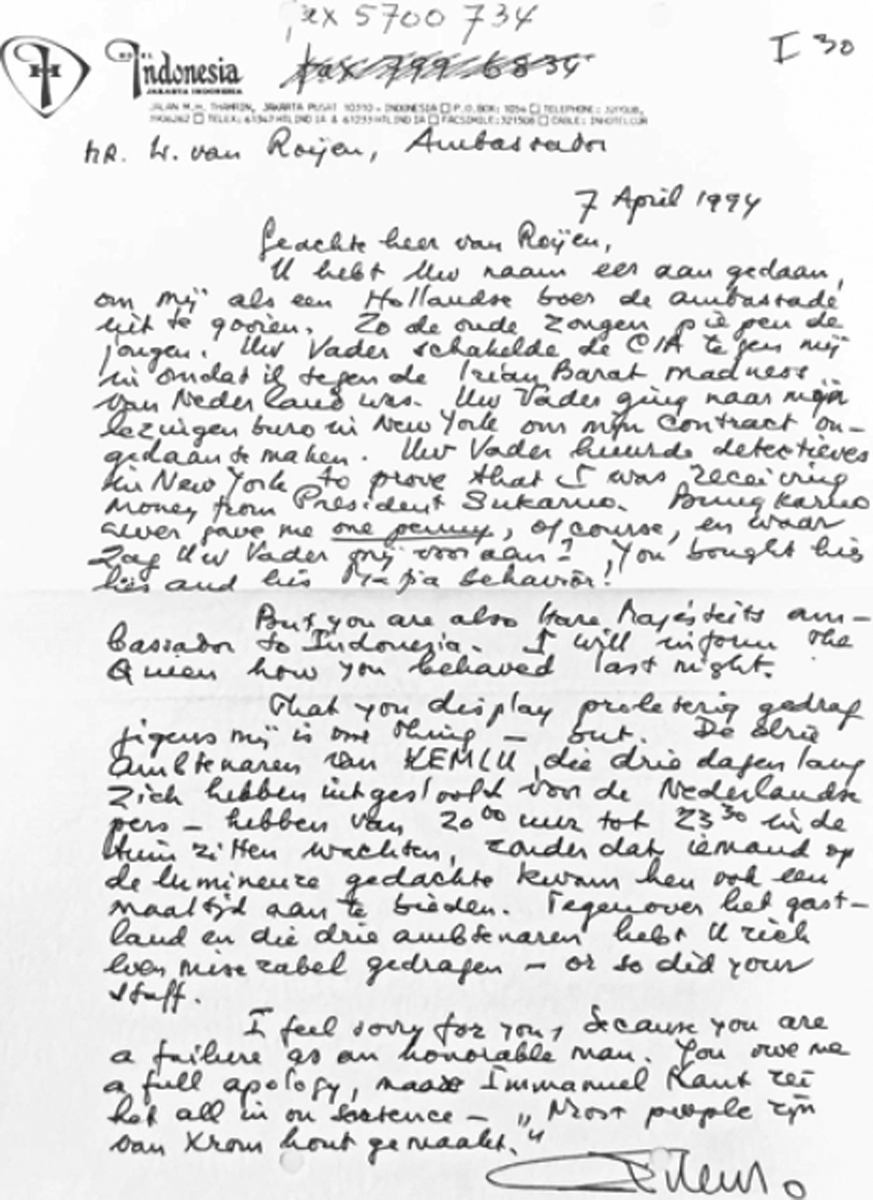 fax 5700 734
I 30
fax 799 6834
HOTEL
Indonesia
JAKARTA INDONESIA
JALAN M.H. THAMRIN, JAKARTA PUSAT 10310 - INDONESIA □ P.O. BOX: 1054 □ TELEPHONE:
□ TELEX: 61347 HILIND IA & 61233 HILIND IA □ FACSIMILE: 321508 □ CABLE: INHOTELCOR
van Roijen, Ambassador
7 April 1994
Geachte heer van Roijen,
U hebt Uw naam eer aan gedaan,
om mij als een Hollandse boer de ambassade
uit te gooien. Zo de oude zongen piepen de
jongen. Uw Vader schakelde de CIA tegen mij
in omdat ik tegen de Irian Barat madness
van Nederland was. Uw Vader ging naar mijn
lezingen buro in New York om mijn contract on-
gedaan te maken. Uw Vader huurde detectieves
in New York to prove that I was receiving
money from President Sukarno. Bung Karno
never gave me one penny, of course, en waar
zag Uw Vader mij voor aan? You bought his
lies and his Mafia behavior!
But you are also Hare Majesteits am-
bassador to Indonesia. I will inform the
Queen how you behaved last night.
That you display proleterig gedrag
jegens mij is one thing - but. De drie
ambtenaren van KEMLU, die drie dagen lang
zich hebben uitgesloofd voor de Nederlandse
pers - hebben van 20⁰⁰ uur tot 23³⁰ in de
tuin zitten wachten, zonder dat iemand op
de lumineuze gedachte kwam hen ook een
maaltijd aan te bieden. Tegenover het gast-
land en die drie ambtenaren hebt U zich
even miserabel gedragen - or so did your
staff.
I feel sorry for you, because you are
a failure as an honorable man. You owe me
a full apology, maar Immanuel Kant zei
het all in on sentence - „Most people zijn
van krom hout gemaakt."